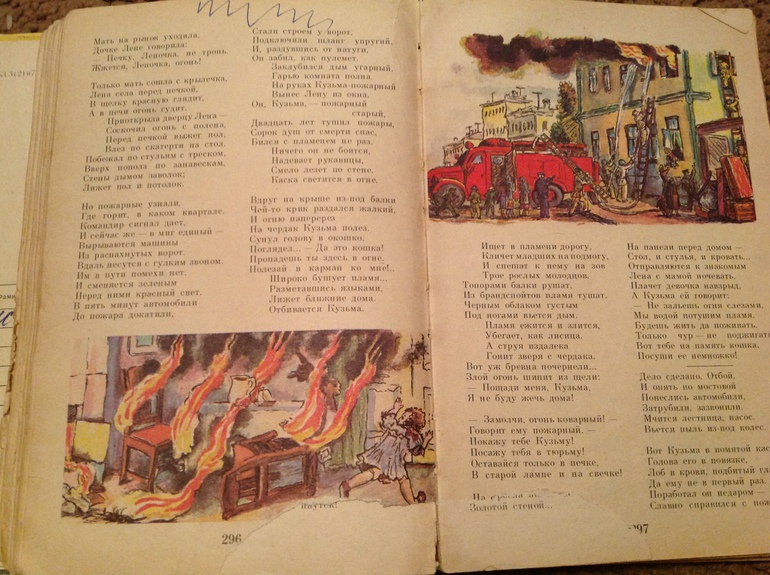 Мать на рынок уходила,
Дочке Лене говорила:
— Печку, Леночка, не тронь.
Жжется, Леночка, огонь!
Только мать сошла с крылечка,
Лена села перед печкой,
В щелку красную глядит,
А в печи огонь гудит.
Приоткрыла дверцу Лена —
Соскочил огонь с полена,
Перед печкой выжег пол,
Влез по скатерти на стол,
Побежал по стульям с треском,
Вверх пополз по занавескам,
Стены дымом заволок,
Лижет пол и потолок.
Но пожарные узнали,
Где горит, в каком квартале.
Командир сигнал дает,
И сейчас же — в миг единый —
Вырываются машины
Из распахнутых ворот.
Вдаль несутся с гулким звоном.
Им в пути помехи нет.
И сменяется зеленым
Перед ними красный свет.
В пять минут автомобили
До пожара докатили,
Стали строем у ворот,
Подключили шланг упругий,
И, раздувшись от натуги,
Он забил, как пулемет.
Заклубился дым угарный.
Гарью комната полна.
На руках Кузьма-пожарный
Вынес Лену из окна.
Он, Кузьма, — пожарный
старый,
Двадцать лет тушил пожары,
Сорок душ от смерти спас,
Бился с пламенем не раз.
Ничего он не боится,
Надевает рукавицы,
Смело лезет по стене.
Каска светится в огне.
Вдруг на крыше из-под балки
Чей-то крик раздался жалкий,
И огню наперерез
На чердак Кузьма полез.
Сунул голову в окошко,
Поглядел... — Да это кошка!
Пропадешь ты здесь в огне.
Полезай в карман ко мне!..
Широко бушует пламя...
Разметавшись языками,
Лижет ближние дома.
Отбивается Кузьма.
296
Ищет в пламени дорогу,
Кличет младших на подмогу,
И спешат к нему на зов
Трое рослых молодцов.
Топорами балки рушат,
Из брандспойтов пламя тушат.
Черным облаком густым
Под ногами вьется дым.
Пламя ежится и злится,
Убегает, как лисица.
А струя издалека
Гонит зверя с чердака.
Вот уж бревна почернели...
Злой огонь шипит из щели:
— Пощади меня, Кузьма,
Я не буду жечь дома!
— Замолчи, огонь коварный! —
Говорит ему пожарный. —
Покажу тебе Кузьму!
Посажу тебя в тюрьму!
Оставайся только в печке,
В старой лампе и на свечке!
На
Золотой стеной...
На панели перед домом —
Стол, и стулья, и кровать...
Отправляются к знакомым
Лена с мамой ночевать.
Плачет девочка навзрыд,
А Кузьма ей говорит:
— Не зальешь огня слезами,
Мы водой потушим пламя.
Будешь жить да поживать.
Только чур — не поджигать
Вот тебе на память кошка.
Посуши ее немножко!
Дело сделано. Отбой.
И опять по мостовой
Понеслись автомобили,
Затрубили, зазвонили.
Мчится лестница, насос.
Вьется пыль из-под колес.
Вот Кузьма в помятой
Голова его в повязке,
Лоб в крови, подбитый
Да ему не в первый раз.
Поработал он недаром —
Славно справился с